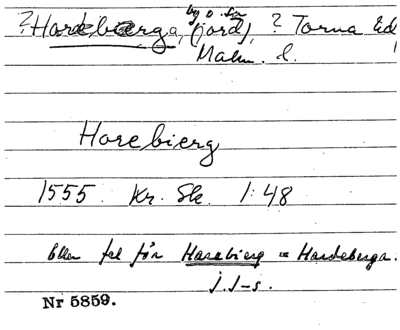 by o. sn
? Hardeberga, (jord), ? Torna hd
Malm. l.
Horebierg
1555. Kr. Sk. 1:48
Eller fel för Harebierg = Hardeberga.
J. J-s.
Nr 5859.